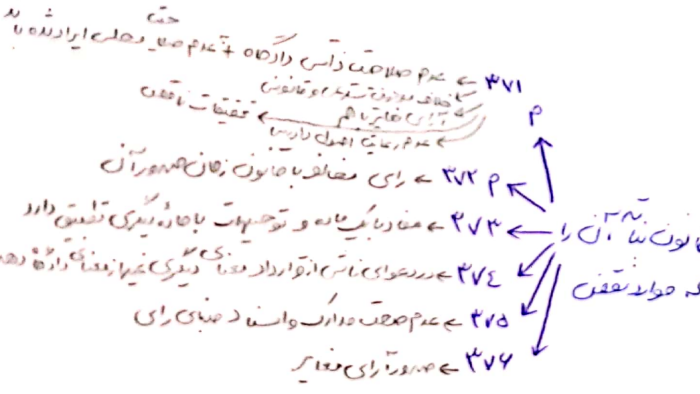 ۳۷۱ م ← عدم صلاحیت ذاتی دادگاه + عدم صلاحیت محلی ایراد شده باشد
← خلاف موازین شرعی و قانونی
← آرای مغایر با هم
← عدم رعایت اصول دادرسی
← تحقیقات ناقص
م ۳۷۲ ← رای مخالف با قانون زمان صدور آن
۳۷۳ ← مفاد یک ماده و توجیهات با ماده دیگری تطبیق دارد
۳۷۴ ← در دعوای ناشی از قرارداد معنای دیگری غیر از معنای دادگاه
۳۷۵ ← عدم صحت مدارک و اسناد مبنای رای
۳۷۶ ← صدور آرای مغایر
آن را
موارد نقض